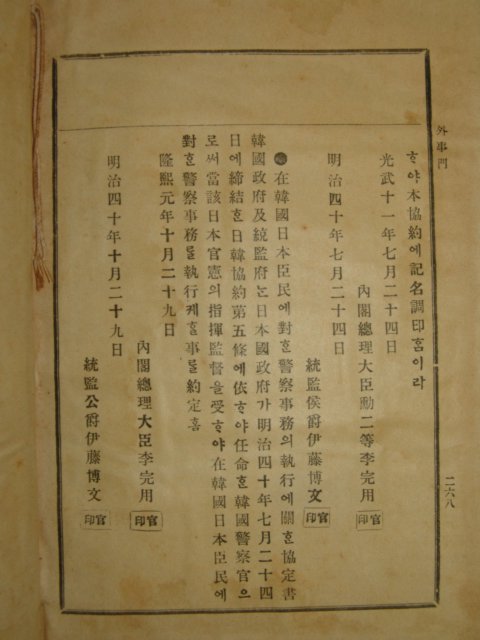 外事門
ᄒᆞ야本協約에記名調印ᄒᆞᆷ이라
光武十一年七月二十四日
內閣總理大臣勳二等李完用 官印
明治四十年七月二十四日
統監侯爵伊藤博文 官印
●在韓國日本臣民에對ᄒᆞᆫ警察事務의執行에關ᄒᆞᆫ協定書
韓國政府及統監府ᄂᆞᆫ日本國政府가明治四十年七月二十四
日에締結ᄒᆞᆫ日韓協約第五條에依ᄒᆞ야任命ᄒᆞᆫ韓國警察官으
로써當該日本官憲의指揮監督을受ᄒᆞ야在韓國日本臣民에
對ᄒᆞᆫ警察事務ᄅᆞᆯ執行케ᄒᆞᆯ事ᄅᆞᆯ約定홈
隆熙元年十月二十九日
內閣總理大臣李完用 官印
明治四十年十月二十九日
統監公爵伊藤博文 官印
二六八